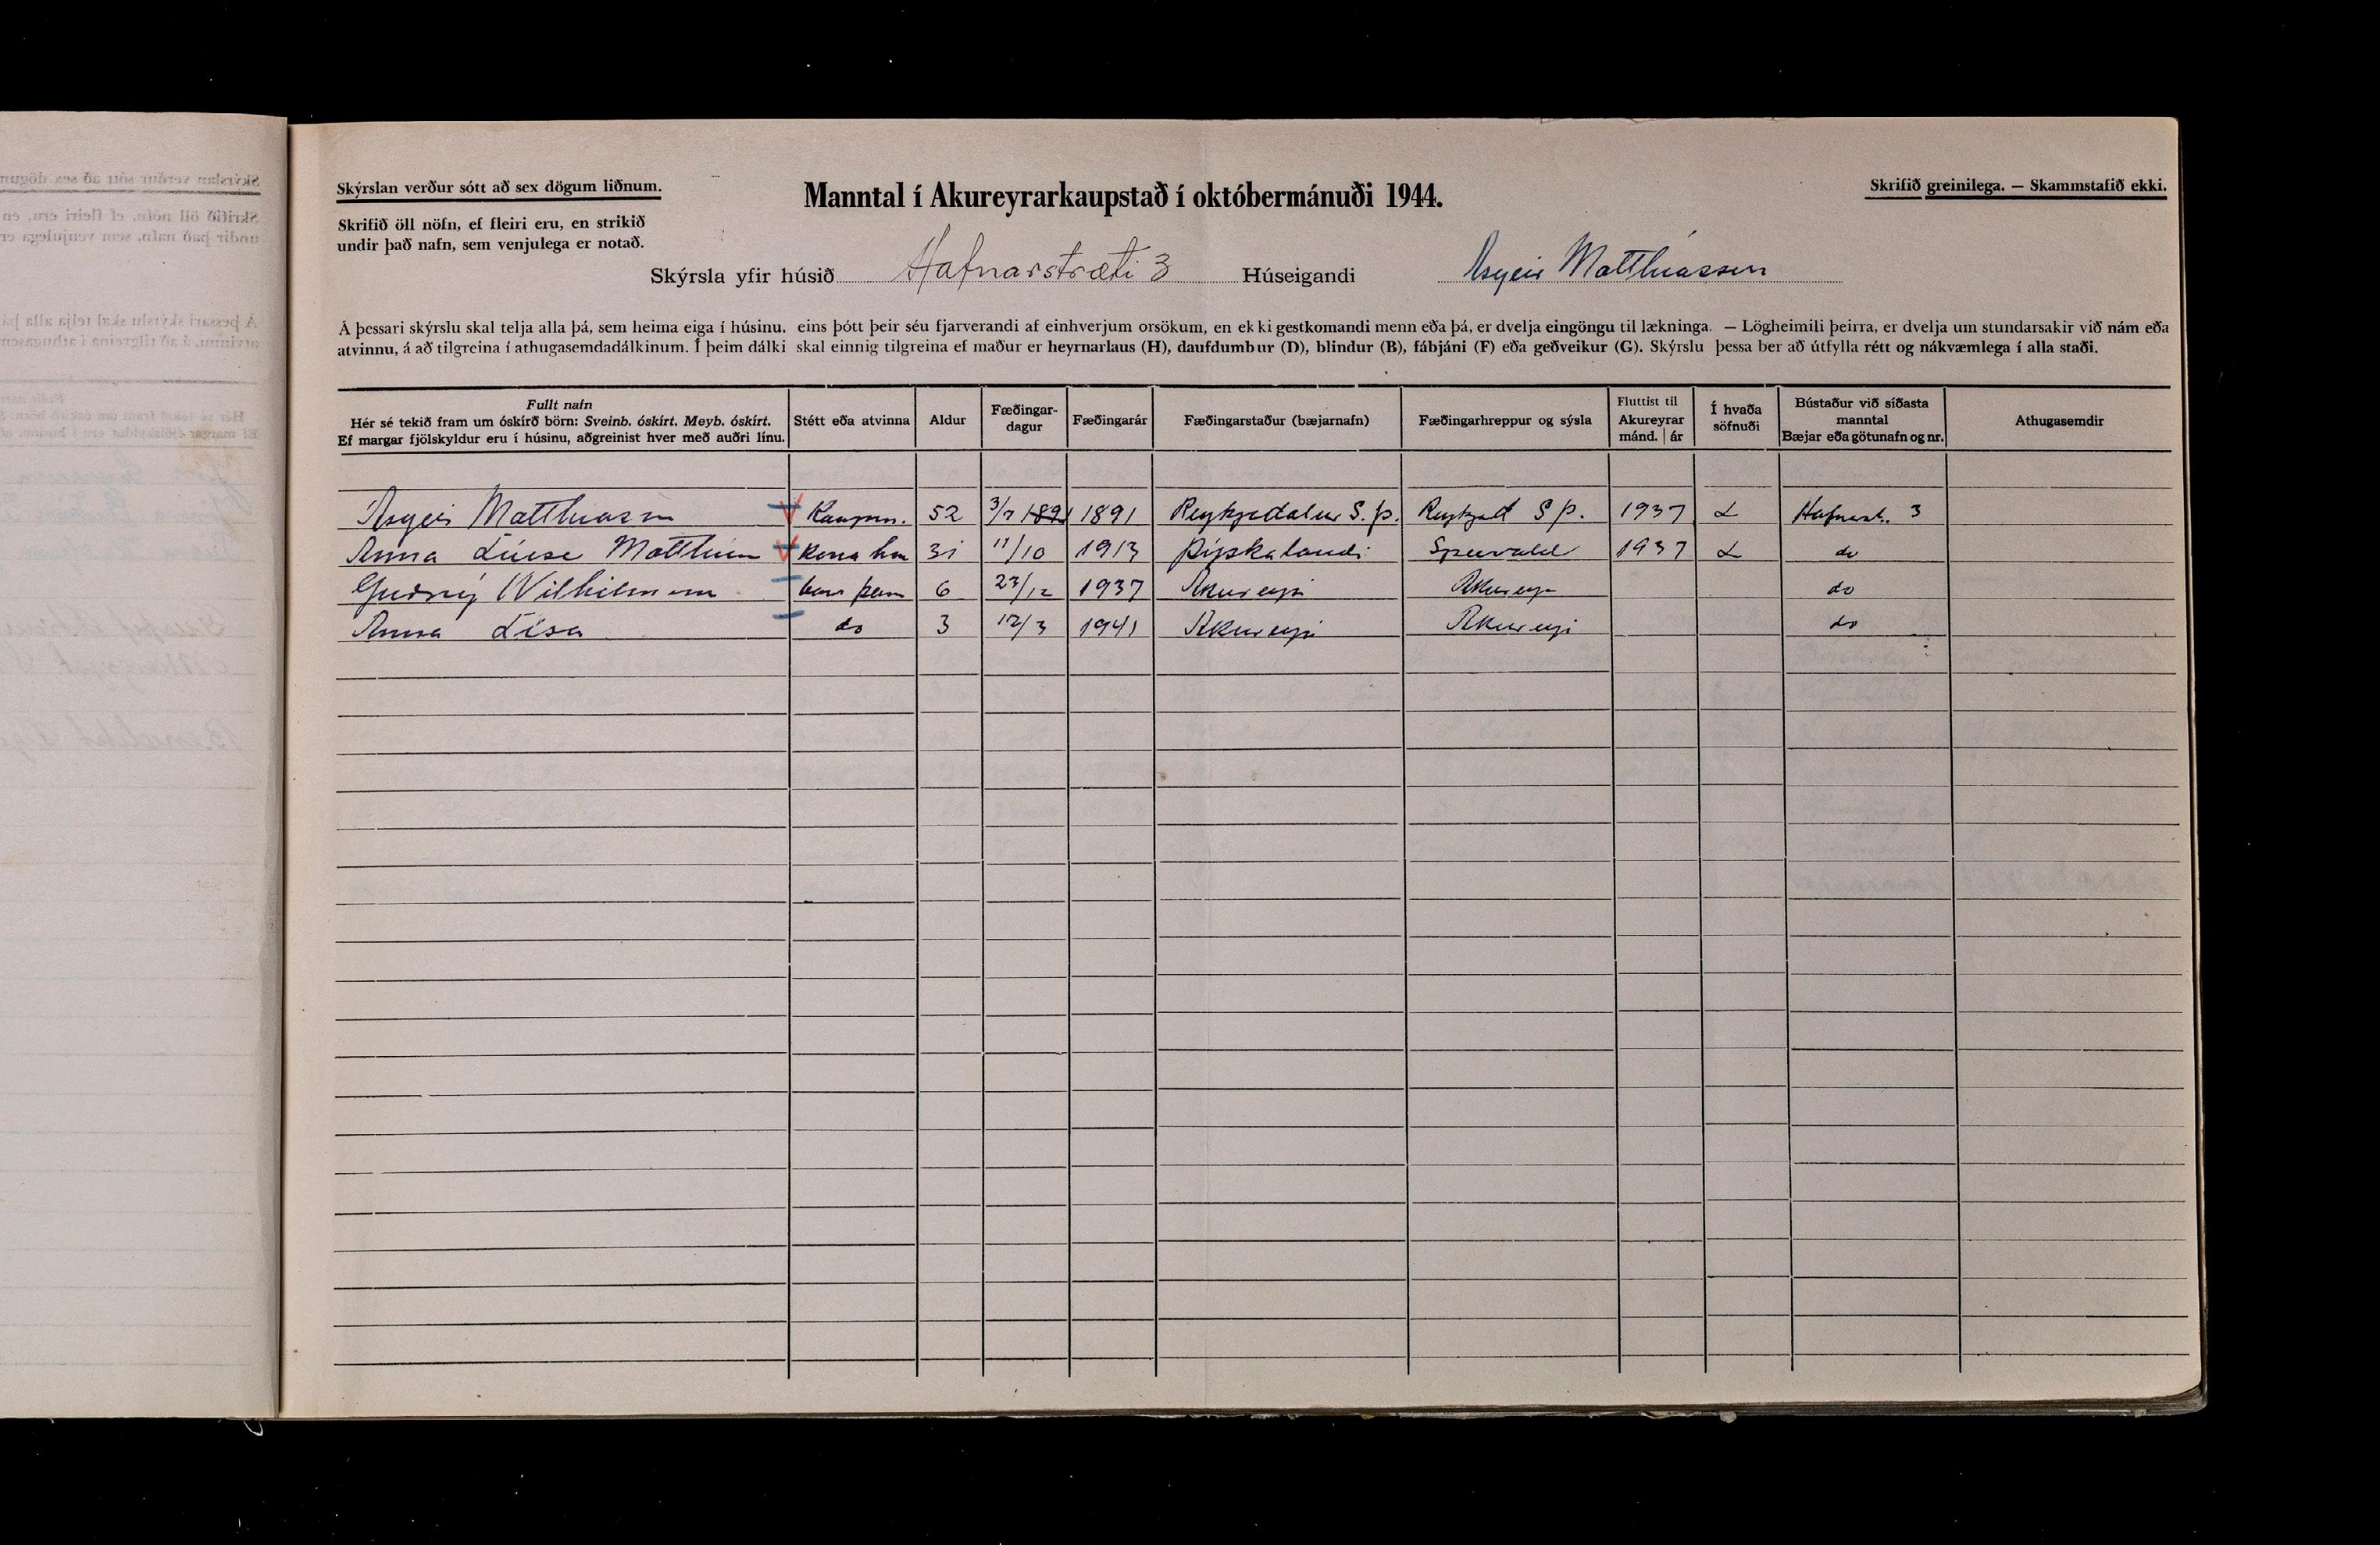 Skýrslan verður sótt að sex dögum liðnum.
Manntal í Akureyrarkaupstað í októbermánuði 1944.
Skrifið greinilega. — Skammstafið ekki.
Skrifið öll nöfn, ef fleiri eru, en strikið
undir það nafn, sem venjulega er notað.
Skýrsla yfir húsið Hafnarstræti 3 Húseigandi Ásgeir Matthíasson
Á þessari skýrslu skal telja alla þá, sem heima eiga í húsinu, eins þótt þeir séu fjarverandi af einhverjum orsökum, en ekki gestkomandi menn eða þá, er dvelja eingöngu til lækninga. — Lögheimili þeirra, er dvelja um stundarsakir við nám eða
atvinnu, á að tilgreina í athugasemdadálkinum. Í þeim dálki skal einnig tilgreina ef maður er heyrnarlaus (H), daufdumbur (D), blindur (B), fábjáni (F) eða geðveikur (G). Skýrslu þessa ber að útfylla rétt og nákvæmlega í alla staði.
Fullt nafn
Hér sé tekið fram um óskírð börn: Sveinb. óskírt. Meyb. óskírt.
Ef margar fjölskyldur eru í húsinu, aðgreinist hver með auðri línu.
Stétt eða atvinna
Aldur
Fæðingar-
dagur
Fæðingarár
Fæðingarstaður (bæjarnafn)
Fæðingarhreppur og sýsla
Fluttist til
Akureyrar
mánd. | ár
Í hvaða
söfnuði
Bústaður við síðasta
manntal
Bæjar eða götunafn og nr.
Athugasemdir
Ásgeir Matthiasson Kaupm. 52 3/7 1891 1891 Reykjadalur S.Þ. Reykjad S Þ. 1937 L Hafnarst. 3
Anna Luise Matthiason Kona hn 31 11/10 1913 Þýskalandi 1937 L do
Guðný Wilhilmina barn þeirra 6 23/12 1937 Akureyri Akureyri do
Anna Lísa do 3 12/3 1941 Akureyri Akureyri do